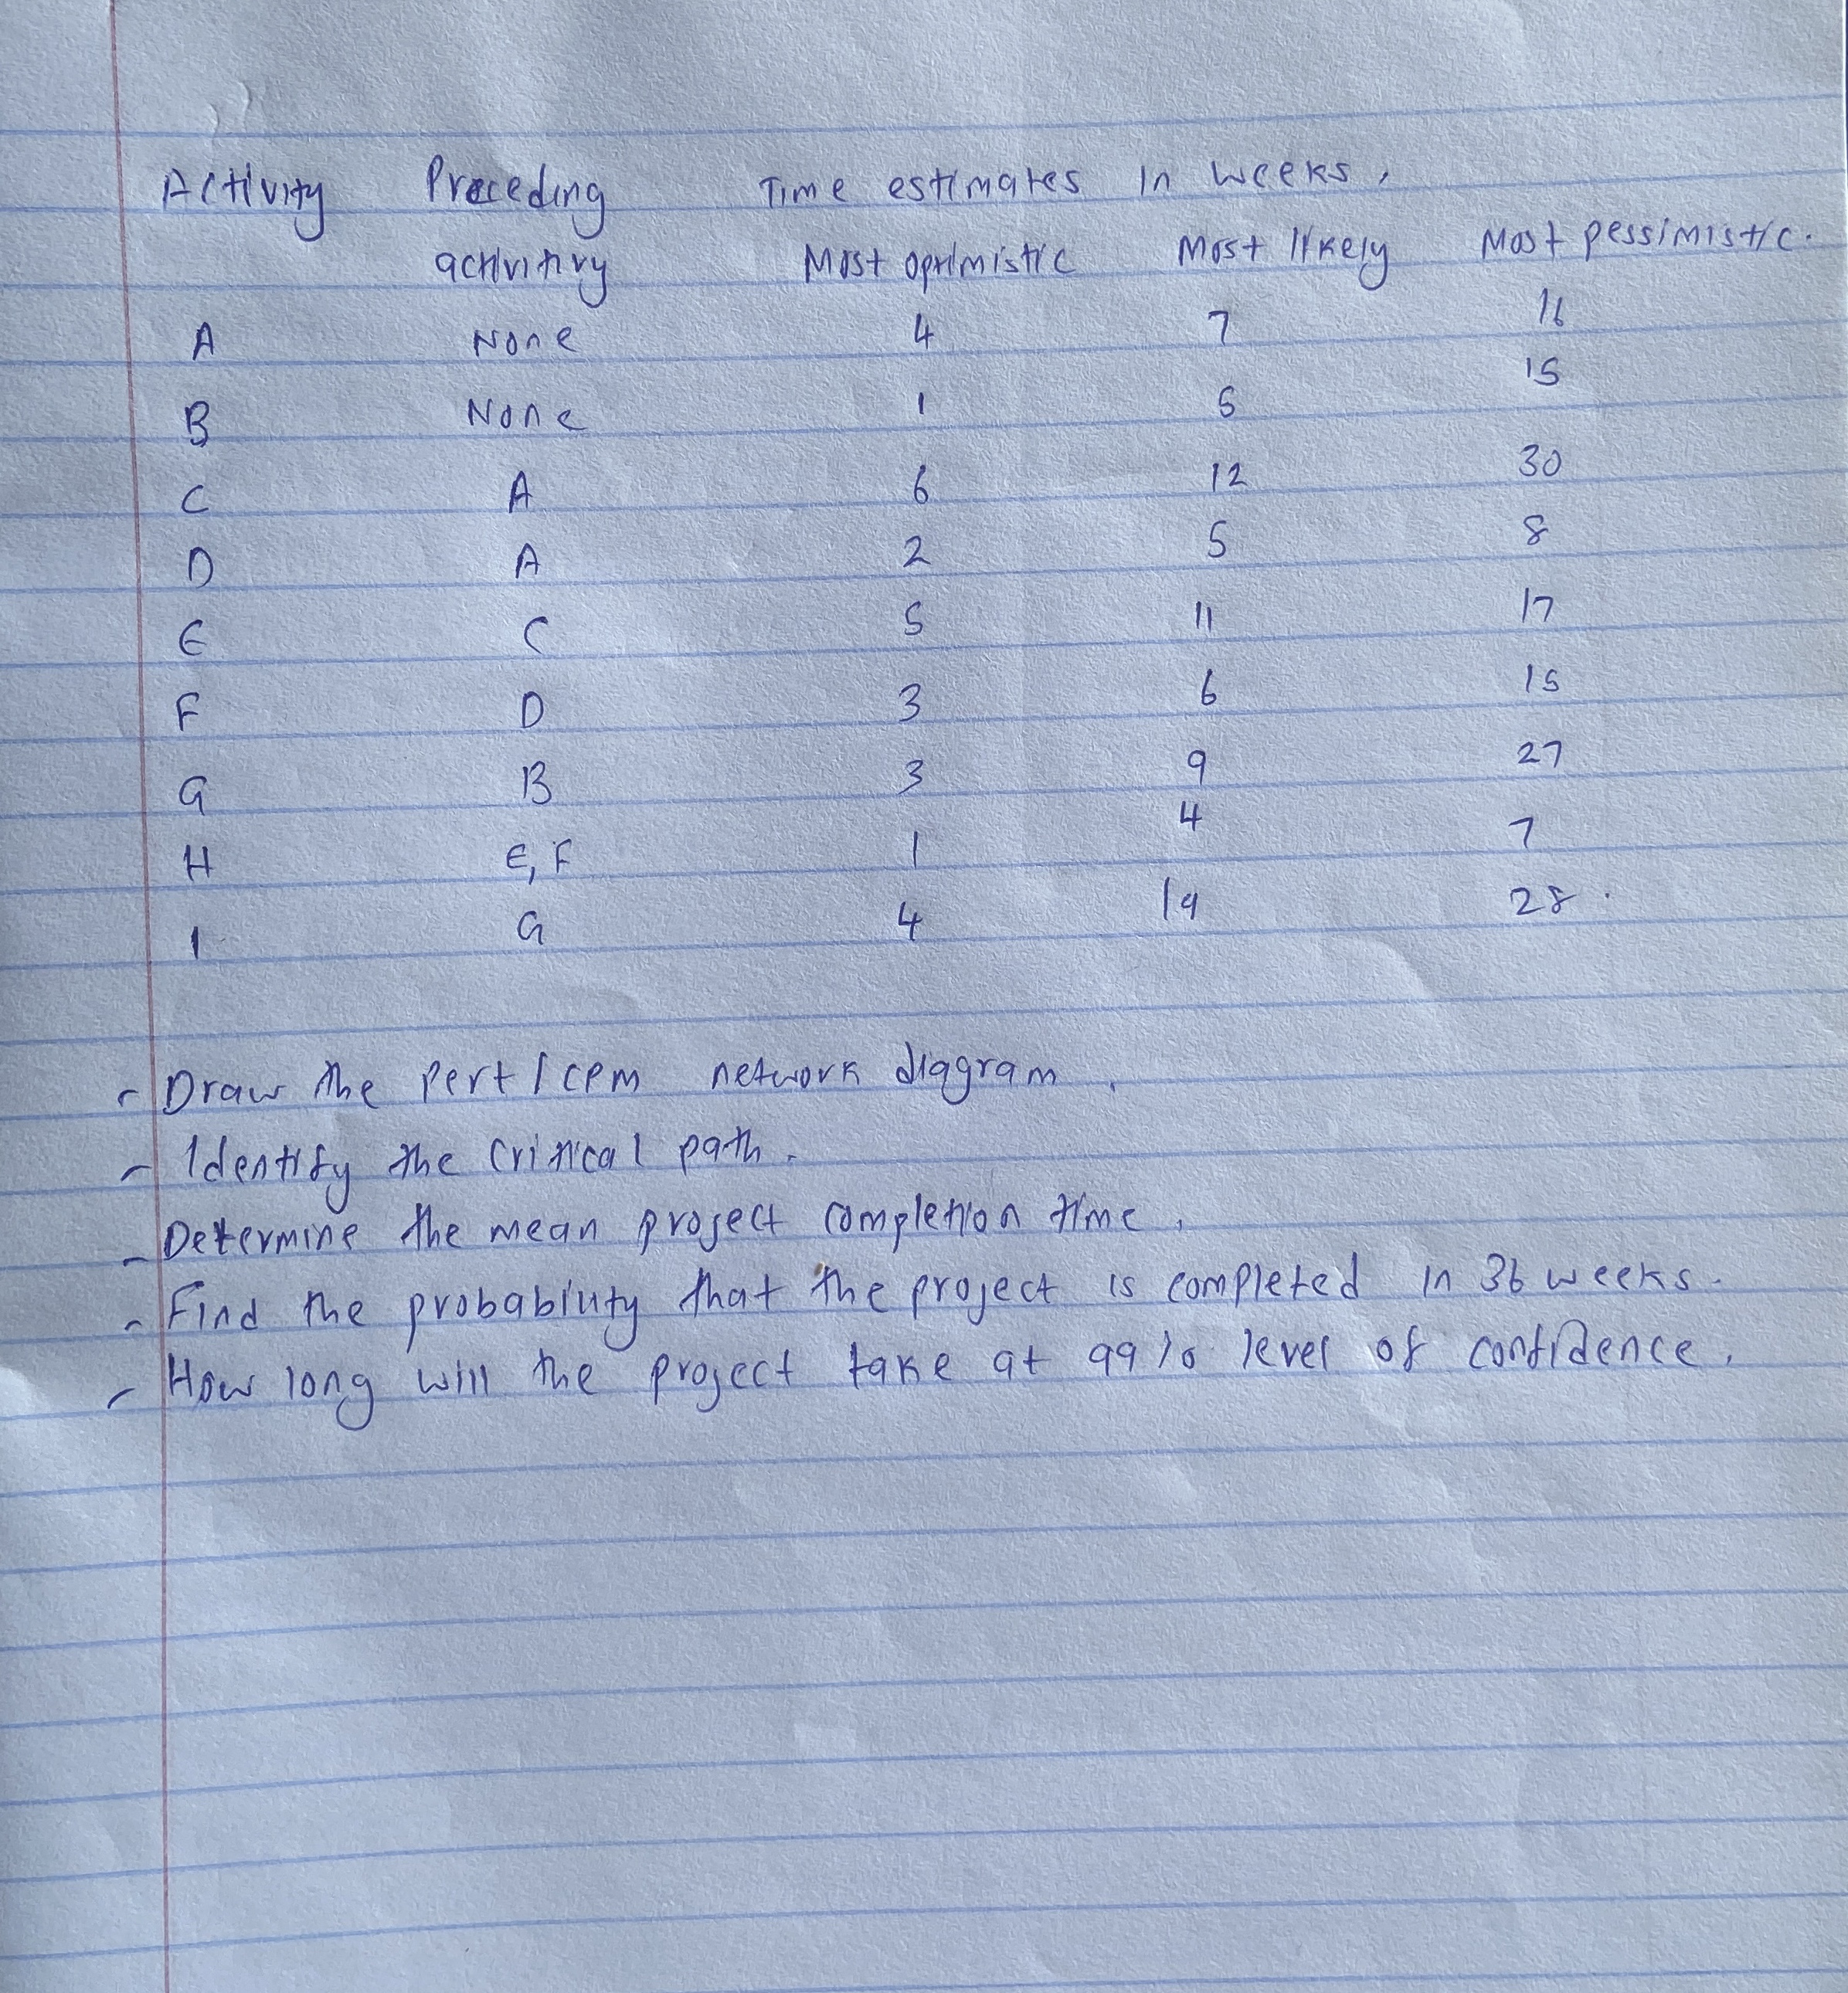 Activity Preceding Time estimates in weeks,
activitivy Most optimistic Most likely Most pessimistic.
A None 4 7 16
B None 1 5 15
C A 6 12 30
D A 2 5 8
E C 5 11 17
F D 3 6 15
G B 3 9 27
H E, F 1 4 7
I G 4 19 28.
- Draw the pert/cpm network diagram,
- Identify the critical path.
- Determine the mean project completion time,
- Find the probability that the project is completed in 36 weeks.
- How long will the project take at 99% level of confidence.